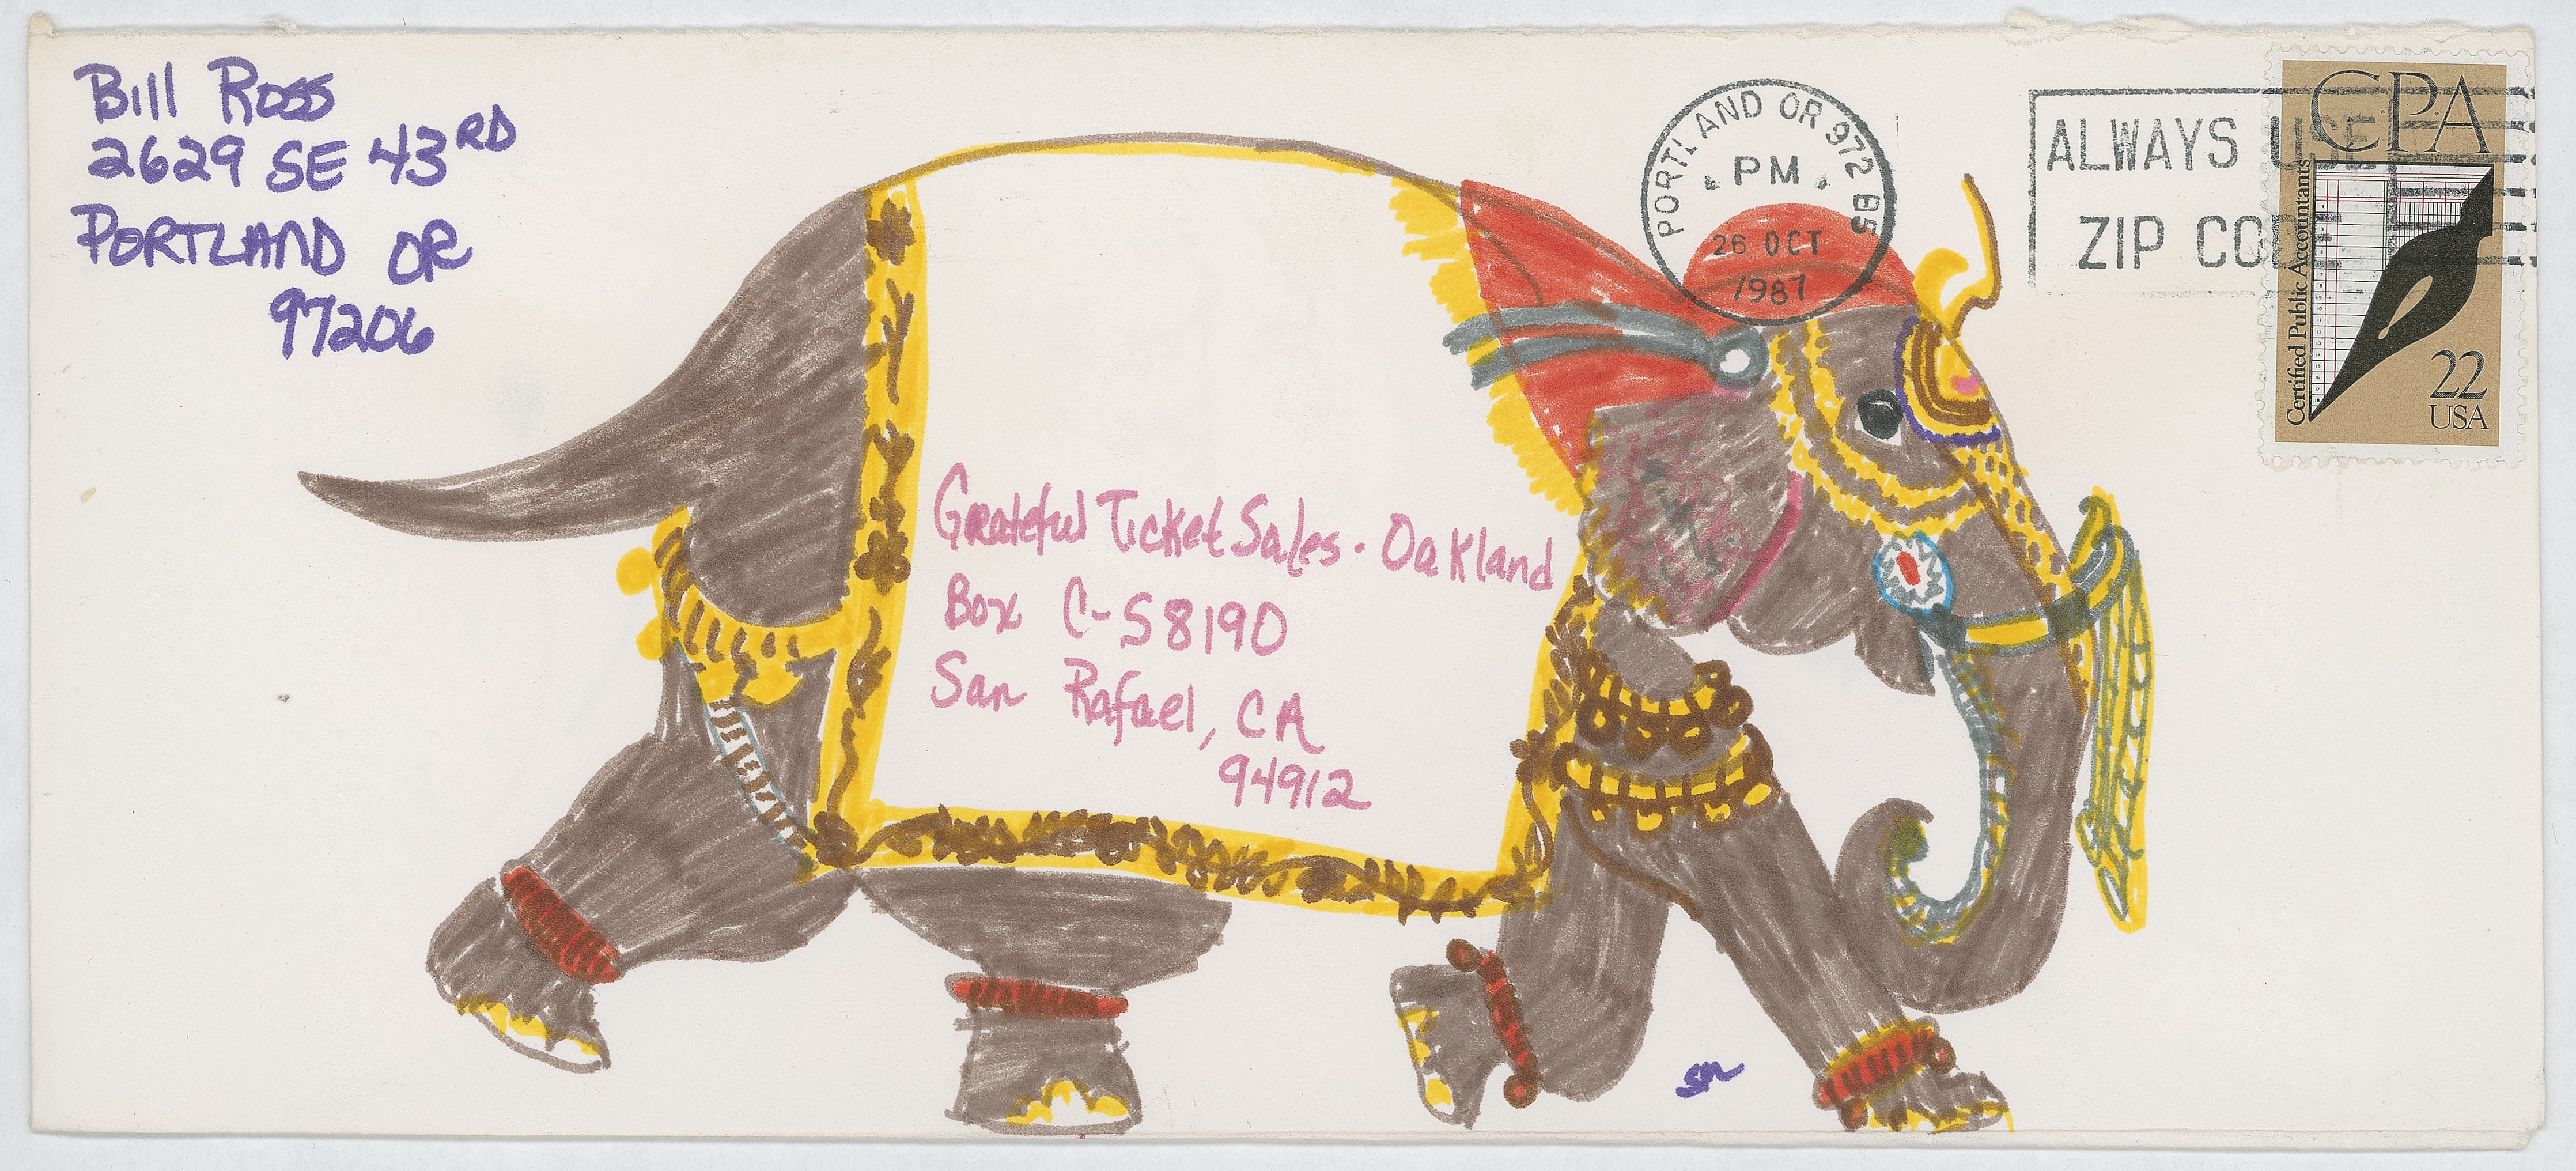 Bill Ross
2629 SE 43RD
PORTLAND OR
97206
PORTLAND OR 972 BS
PM
26 OCT
1987
ALWAYS USE
ZIP CODE
CPA
Certified Public Accountants
22
USA
Grateful Ticket Sales · Oakland
Box C-S8190
San Rafael, CA
94912